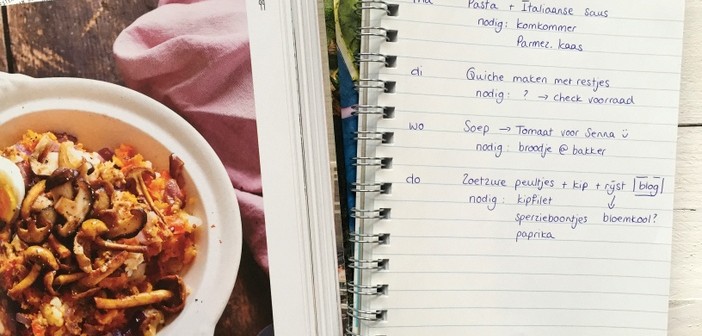 99
ma Pasta + Italiaanse saus
nodig: komkommer
Parmez. kaas
di Quiche maken met restjes
nodig: ? → check voorraad
wo Soep → Tomaat voor Senna ü
nodig: broodje @ bakker
do Zoetzure peultjes + kip + rijst |blog|
nodig: kipfilet ↓
sperzieboontjes bloemkool?
paprika